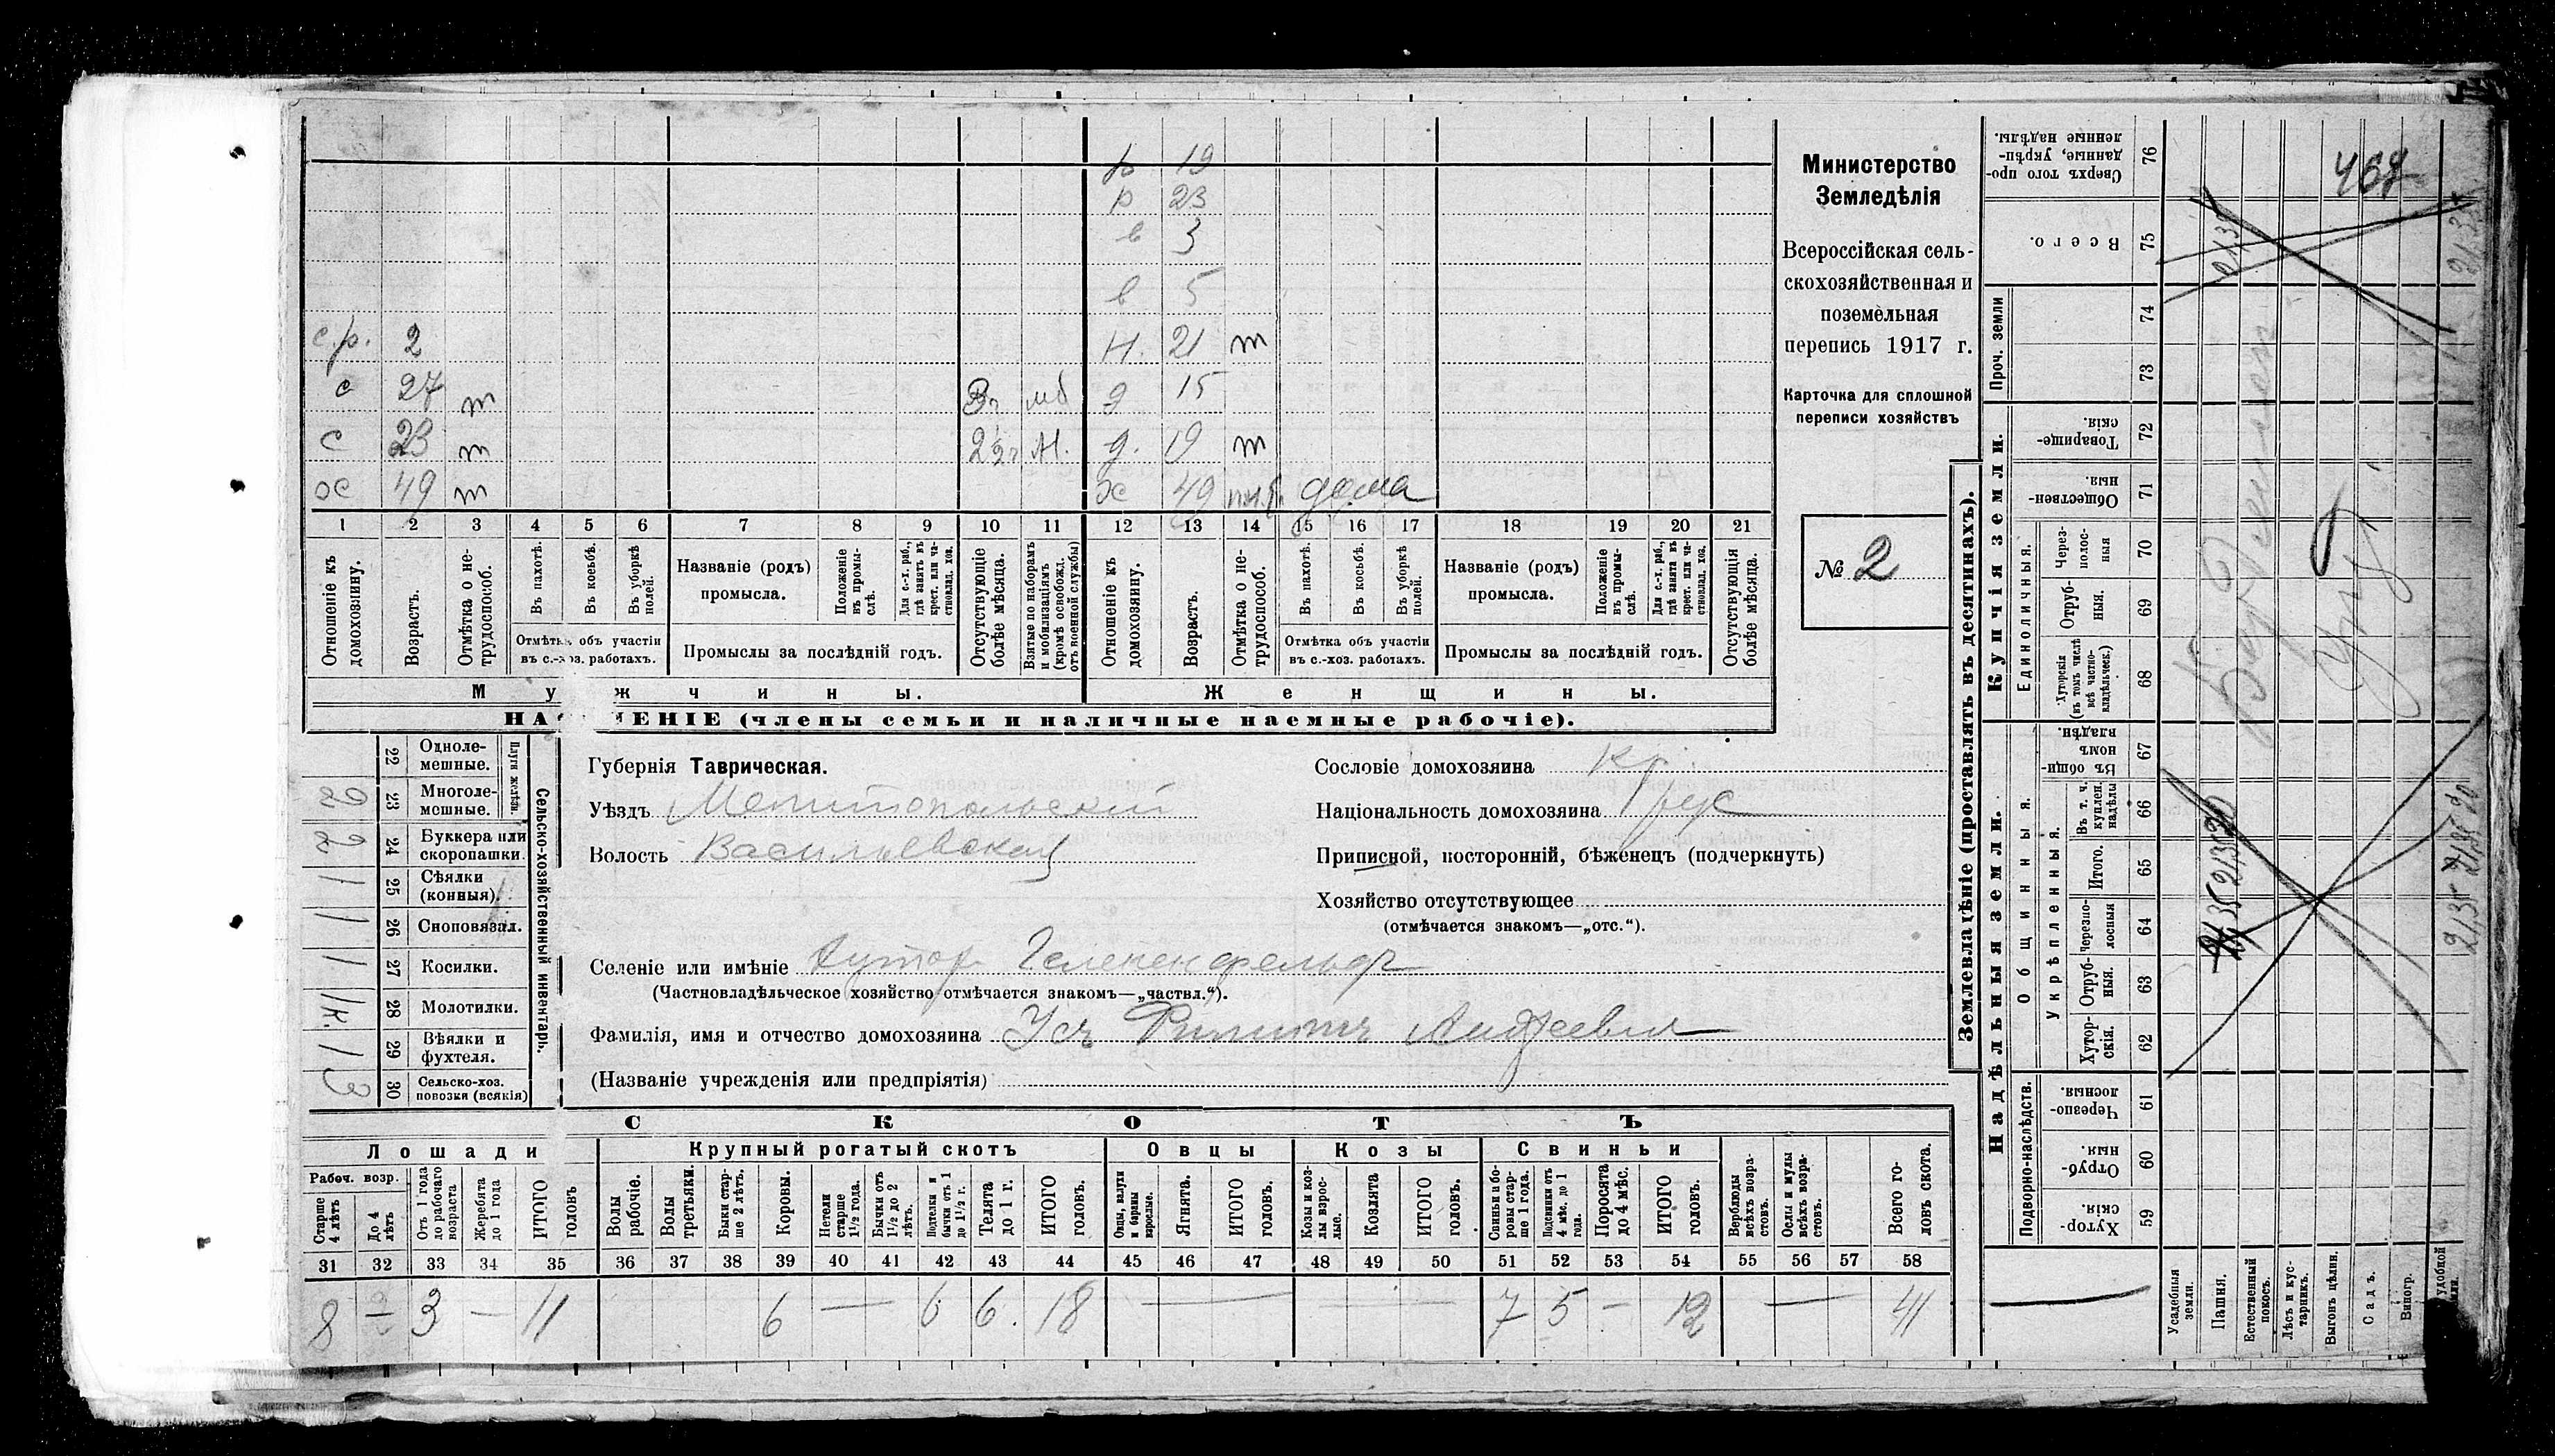 Министерство
Земледѣлія
Всероссійская сель-
скохозяйственная и
поземельная
перепись 1917 г.
Карточка для сплошной
переписи хозяйствъ
№ 2
р 19
р 23
в 3
в 5
с.р. 2 Н. 21 т
с 27 т мб д 15
с 23 т М. д. 19 т
х 49 т х 49 дома
1 2 3 4 5 6 7 8 9 10 11 12 13 14 15 16 17 18 19 20 21
Отношеніе къ домохозяину.
Возрастъ.
Отмѣтка о не-трудоспособ.
Въ пахотѣ.
Въ косьбѣ.
Въ уборкѣ полей.
Отмѣтка объ участіи въ с.-хоз. работахъ.
Названіе (родъ) промысла.
Положеніе въ промы-слѣ.
Для с.-х. раб., гдѣ занятъ въ крест. или ча-стновлад. хоз.
Промыслы за послѣдній годъ.
Отсутствующіе болѣе мѣсяца.
Взятые по наборамъ и мобилизаціямъ (кромѣ освобожд. отъ военной службы)
Отношеніе къ домохозяину.
Возрастъ.
Отмѣтка о не-трудоспособ.
Въ пахотѣ.
Въ косьбѣ.
Въ уборкѣ полей.
Отмѣтка объ участіи въ с.-хоз. работахъ.
Названіе (родъ) промысла.
Положеніе въ промы-слѣ.
Для с.-х. раб., гдѣ занята въ крест. или ча-стновлад. хоз.
Промыслы за послѣдній годъ.
Отсутствующія болѣе мѣсяца.
Мужчины.
Женщины.
(члены семьи и наличные наемные рабочіе).
Сельско-хозяйственный инвентарь.
22 Одноле-мешные.
2 23 Многоле-мешные.
2 24 Буккера или скоропашки.
1 25 Сѣялки (конныя).
1 26 Сноповязал.
1 27 Косилки.
1 к. 28 Молотилки.
1 29 Вѣялки и фухтеля.
3 30 Сельско-хоз. повозки (всякія)
Губернія Таврическая.
Уѣздъ Мелитопольскій
Волость Васильевская
Сословіе домохозяина кр.
Національность домохозяина рус
Приписной, посторонній, бѣженецъ (подчеркнуть)
Хозяйство отсутствующее
(отмѣчается знакомъ—„отс.“).
Селеніе или имѣніе Хутор
(Частновладѣльческое хозяйство отмѣчается знакомъ—„частвл.“).
Фамилія, имя и отчество домохозяина Усъ Филиппъ Андреевич
(Названіе учрежденія или предпріятія)
СКОТЪ
Лошади
Крупный рогатый скотъ
Овцы
Козы
Свиньи
Рабоч. возр.
Старше 4 лѣтъ
До 4 лѣтъ
Отъ 1 года до рабочаго возраста
Жеребята до 1 года
ИТОГО головъ
Волы рабочіе.
Волы третьяки.
Быки стар-ше 2 лѣтъ.
Коровы.
Нетели старше 1½ года.
Бычки отъ 1½ до 2 лѣтъ.
Подтелки и бычки отъ 1 до 1½ г.
Телята до 1 г.
ИТОГО головъ.
Овцы, валухи и бараны взрослые.
Ягнята.
ИТОГО головъ.
Козы и коз-лы взрос-лые.
Козлята
ИТОГО головъ.
Свиньи и бо-ровы стар-ше 1 года.
Подсвинки отъ 4 мѣс. до 1 года.
Поросята до 4 мѣс.
ИТОГО головъ.
Верблюды всѣхъ возра-стовъ.
Ослы и мулы всѣхъ возра-стовъ.
Всего го-ловъ скота.
31 32 33 34 35 36 37 38 39 40 41 42 43 44 45 46 47 48 49 50 51 52 53 54 55 56 57 58
8 3 — 11 6 — 6 6. 18 — — 7 5 — 12 — 41
Землевладѣніе (проставлять въ десятинахъ).
Надѣльныя земли.
Купчія земли.
Проч. земли
Подворно-наслѣдств.
Общинныя.
Укрѣпленныя.
Единоличныя.
Хутор-скія. 59
Отруб-ныя. 60
Черезпо-лосныя. 61
Хутор-скія. 62
Отруб-ныя. 63
Черезпо-лосныя 64
Итого. 65
Въ т. ч. куплен. надѣлы 66
Въ общин-номъ владѣн. 67
Хуторскія (въ томъ числѣ всѣ частно-владѣльческ.) 68
Отруб-ныя. 69
Через-полос-ныя 70
Обществен-ныя. 71
Товарище-скія. 72
73
74
Всего. 75
Сверхъ того про-данные, укрѣп-ленные надѣлы. 76
Усадебныя земли.
Пашня.
Естественный покосъ.
Лѣсъ и кус-тарникъ.
Выгонъ цѣлин.
Садъ.
Виногр.
468
21,35